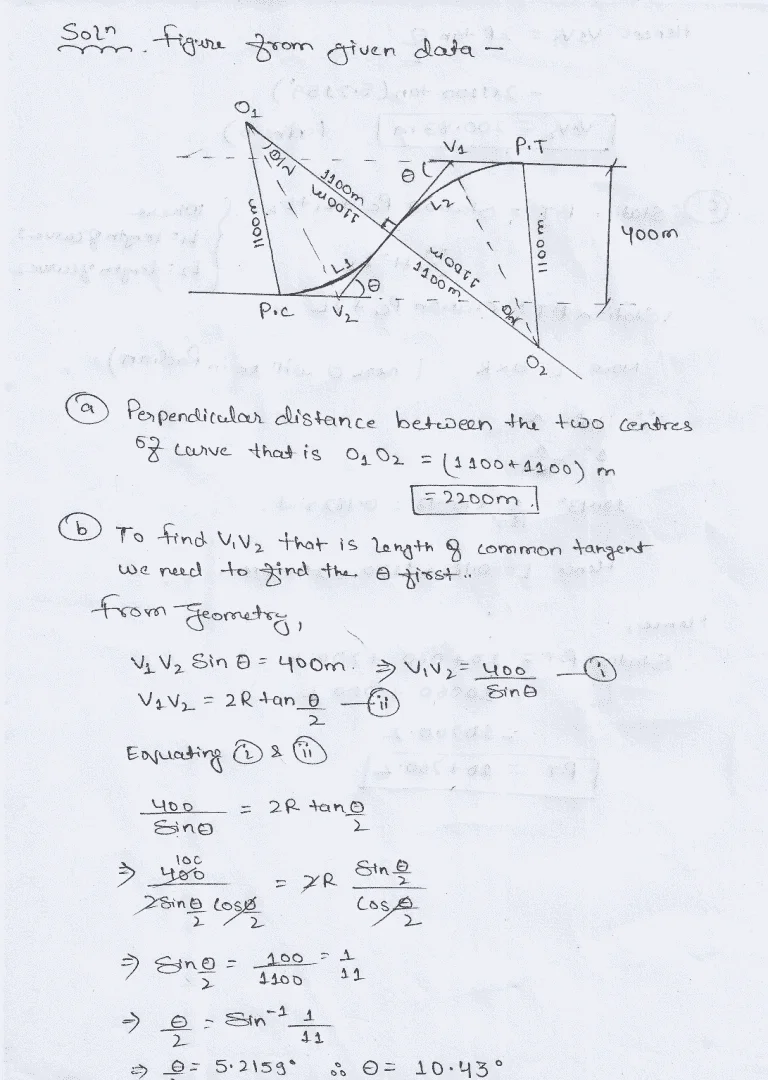 Soln. figure from given data –
O1
V1 P.T
θ/2 1100m 1100m θ
1100m L2 1100m 400m
L1 θ 1100m 1100m
P.C V2 θ/2
O2
(a) Perpendicular distance between the two centres
of curve that is O1O2 = (1100+1100) m
= 2200m.
(b) To find V1V2 that is length of common tangent
we need to find the θ first..
From Geometry,
V1V2 Sin θ = 400m. ⇒ V1V2 = 400/Sinθ — (i)
V1V2 = 2R tan θ/2 — (ii)
Equating (i) & (ii)
400/Sinθ = 2R tan θ/2
⇒ 100 400/2Sin θ/2 cos θ/2 = 2R Sin θ/2 / Cos θ/2
⇒ Sin θ/2 = 100/1100 = 1/11
⇒ θ/2 = Sin⁻¹ 1/11
⇒ θ/2 = 5.2159° ∴ θ = 10.43°